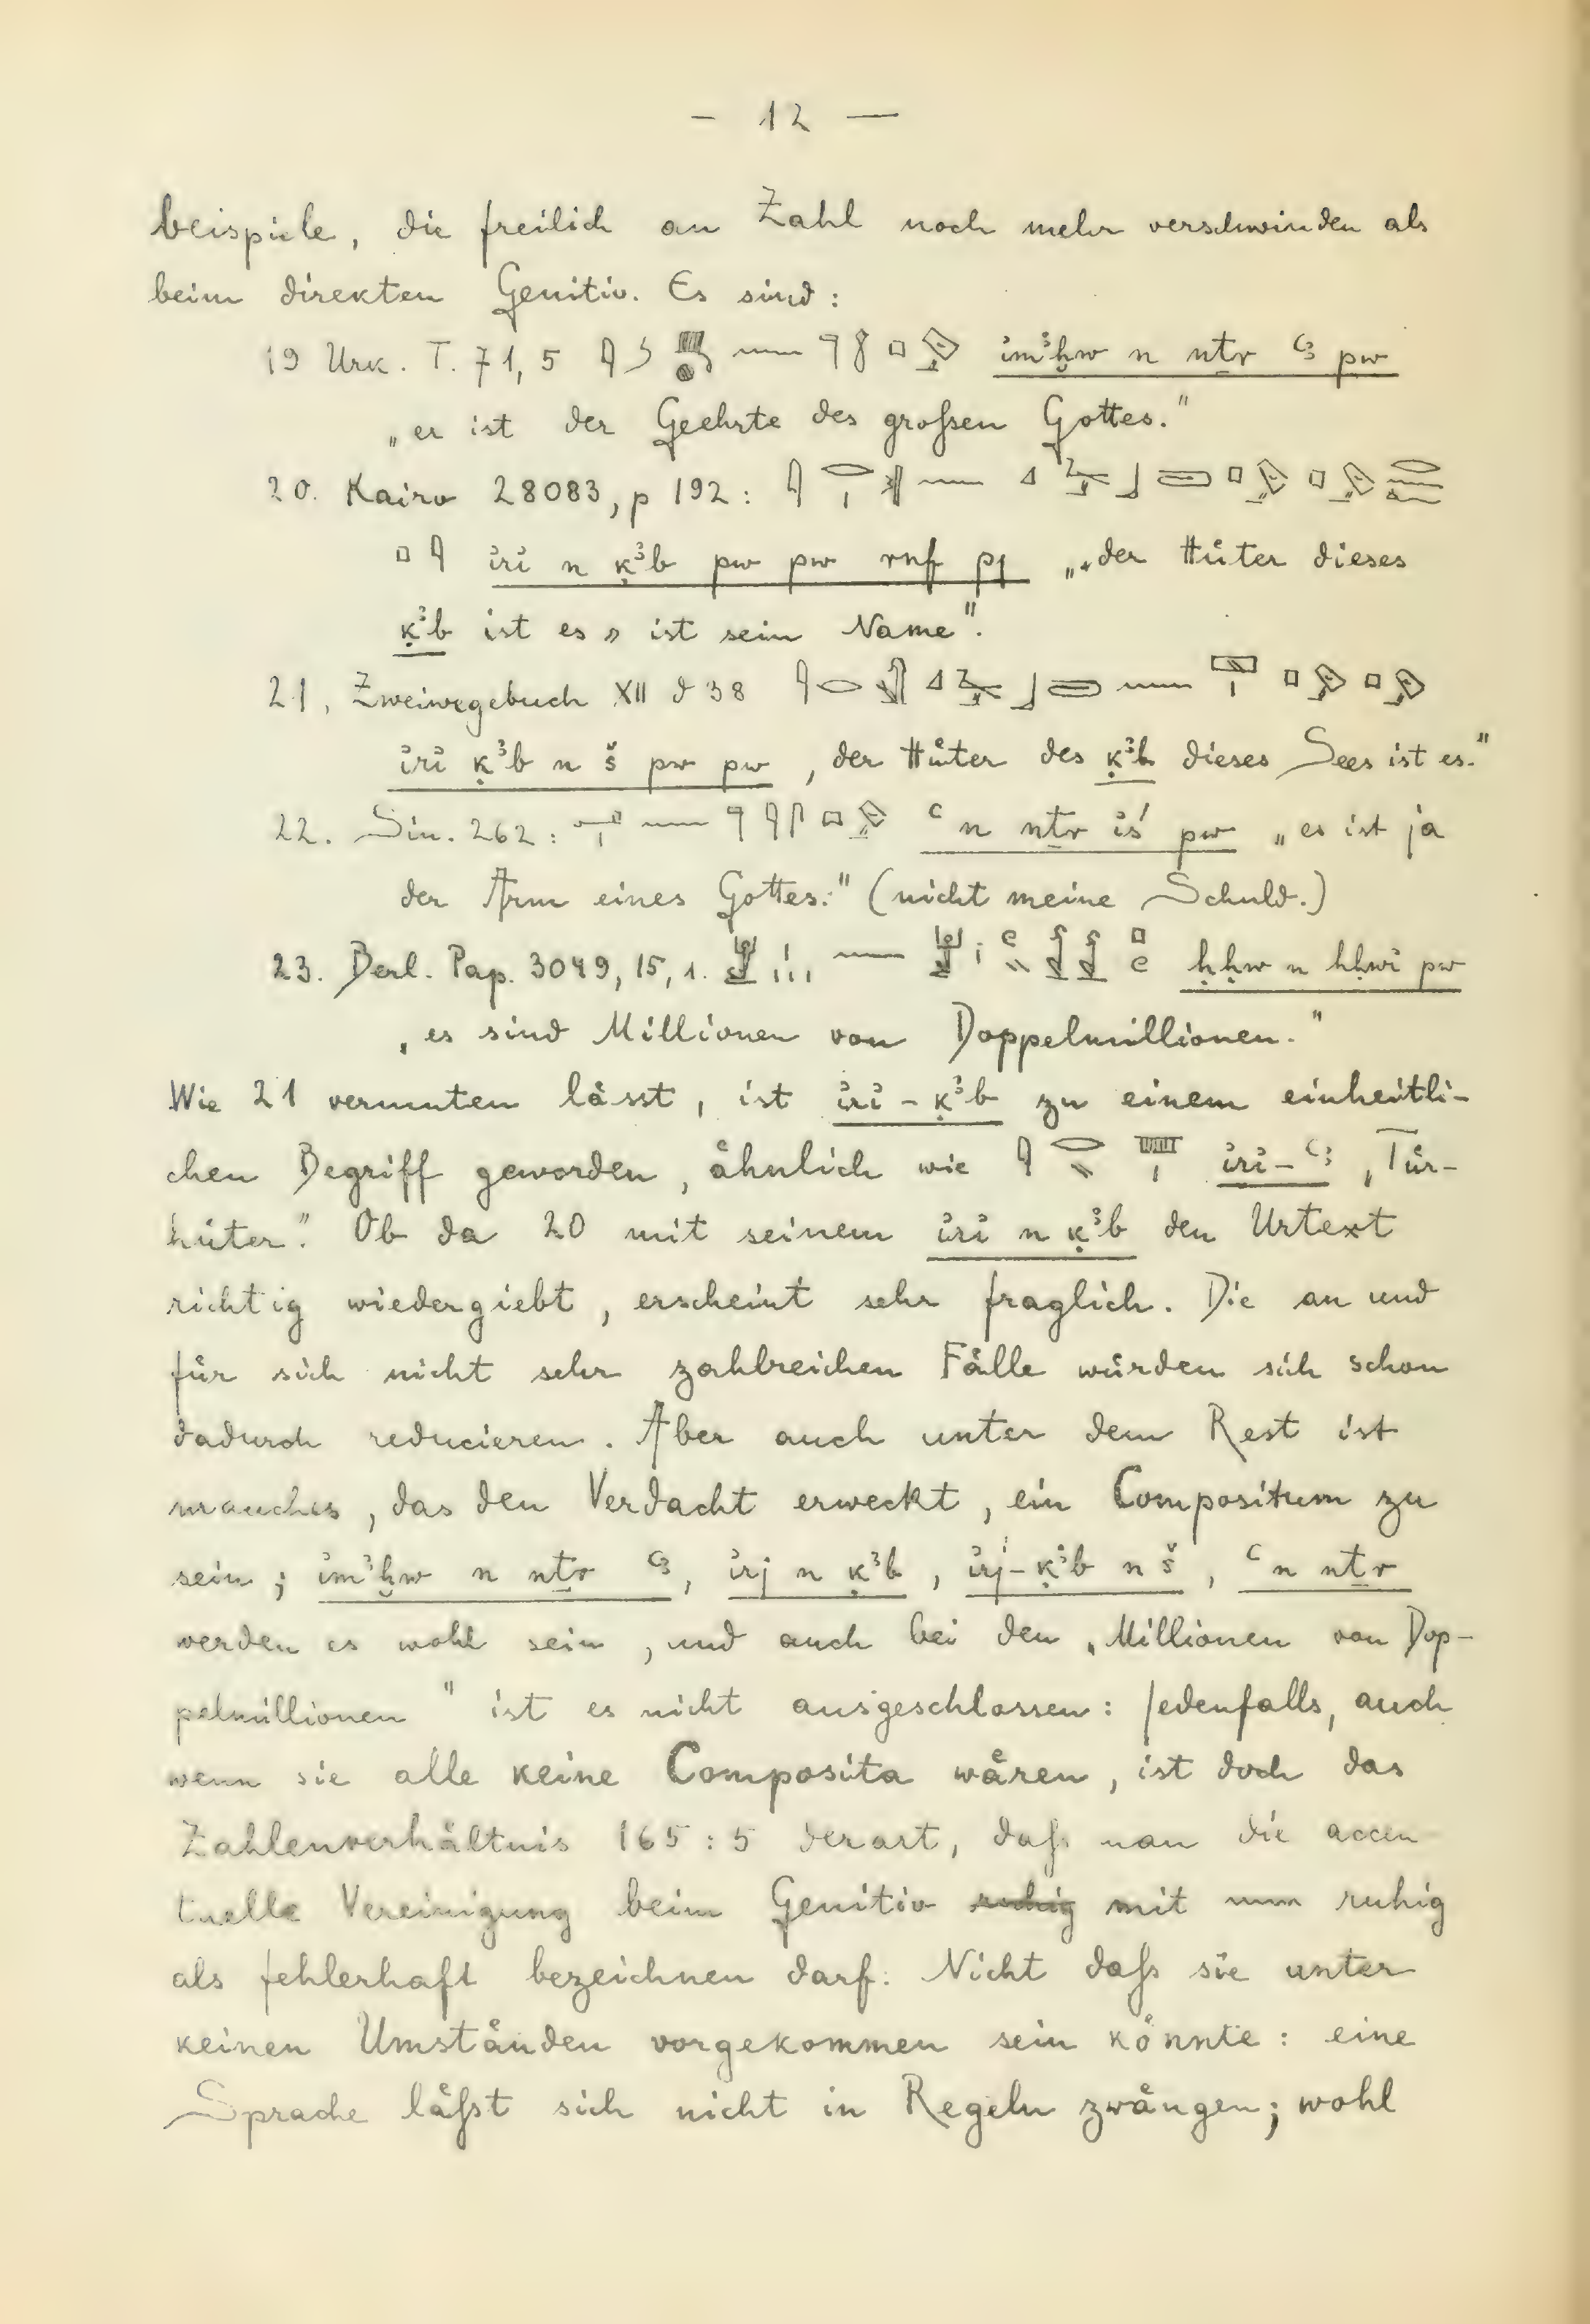 — 12 —
beispiele, die freilich an Zahl noch mehr verschwinden als
beim direkten Genitiv. Es sind:
19 Urk. T. 71,5 imꜣḫw n nṯr ꜥꜣ pw
„er ist der Geehrte des großen Gottes."
20. Kairo 28083, p 192:
iri n ḳꜣb pw pw rnf pj „„der Hüter dieses
ḳꜣb ist es" ist sein Name".
21, Zweiwegebuch XII d 38
iri ḳꜣb n š pw pw „der Hüter des ḳꜣb dieses Sees ist es."
22. Sin. 262: ꜥ n nṯr iś pw „es ist ja
der Arm eines Gottes." (nicht meine Schuld.)
23. Berl. Pap. 3049, 15, 1. ḥḥw n ḥḥwi pw
„es sind Millionen von Doppelmillionen."
Wie 21 vermuten lässt, ist iri-ḳꜣb zu einem einheitli-
chen Begriff geworden, ähnlich wie iri-ꜥꜣ „Tür-
hüter". Ob da 20 mit seinem iri n ḳꜣb den Urtext
richtig wiedergiebt, erscheint sehr fraglich. Die an und
für sich nicht sehr zahlreichen Fälle würden sich schon
dadurch reducieren. Aber auch unter dem Rest ist
manches, das den Verdacht erweckt, ein Compositum zu
sein; imꜣḫw n nṯr ꜥꜣ, irj n ḳꜣb, irj-ḳꜣb n š, ꜥ n nṯr
werden es wohl sein, und auch bei den „Millionen von Dop-
pelmillionen" ist es nicht ausgeschlossen: jedenfalls, auch
wenn sie alle keine Composita wären, ist doch das
Zahlenverhältnis 165:5 derart, daß man die accen
tuelle Vereinigung beim Genitiv ruhig mit 𓈖 ruhig
als fehlerhaft bezeichnen darf. Nicht daß sie unter
keinen Umständen vorgekommen sein könnte: eine
Sprache läßt sich nicht in Regeln zwängen; wohl